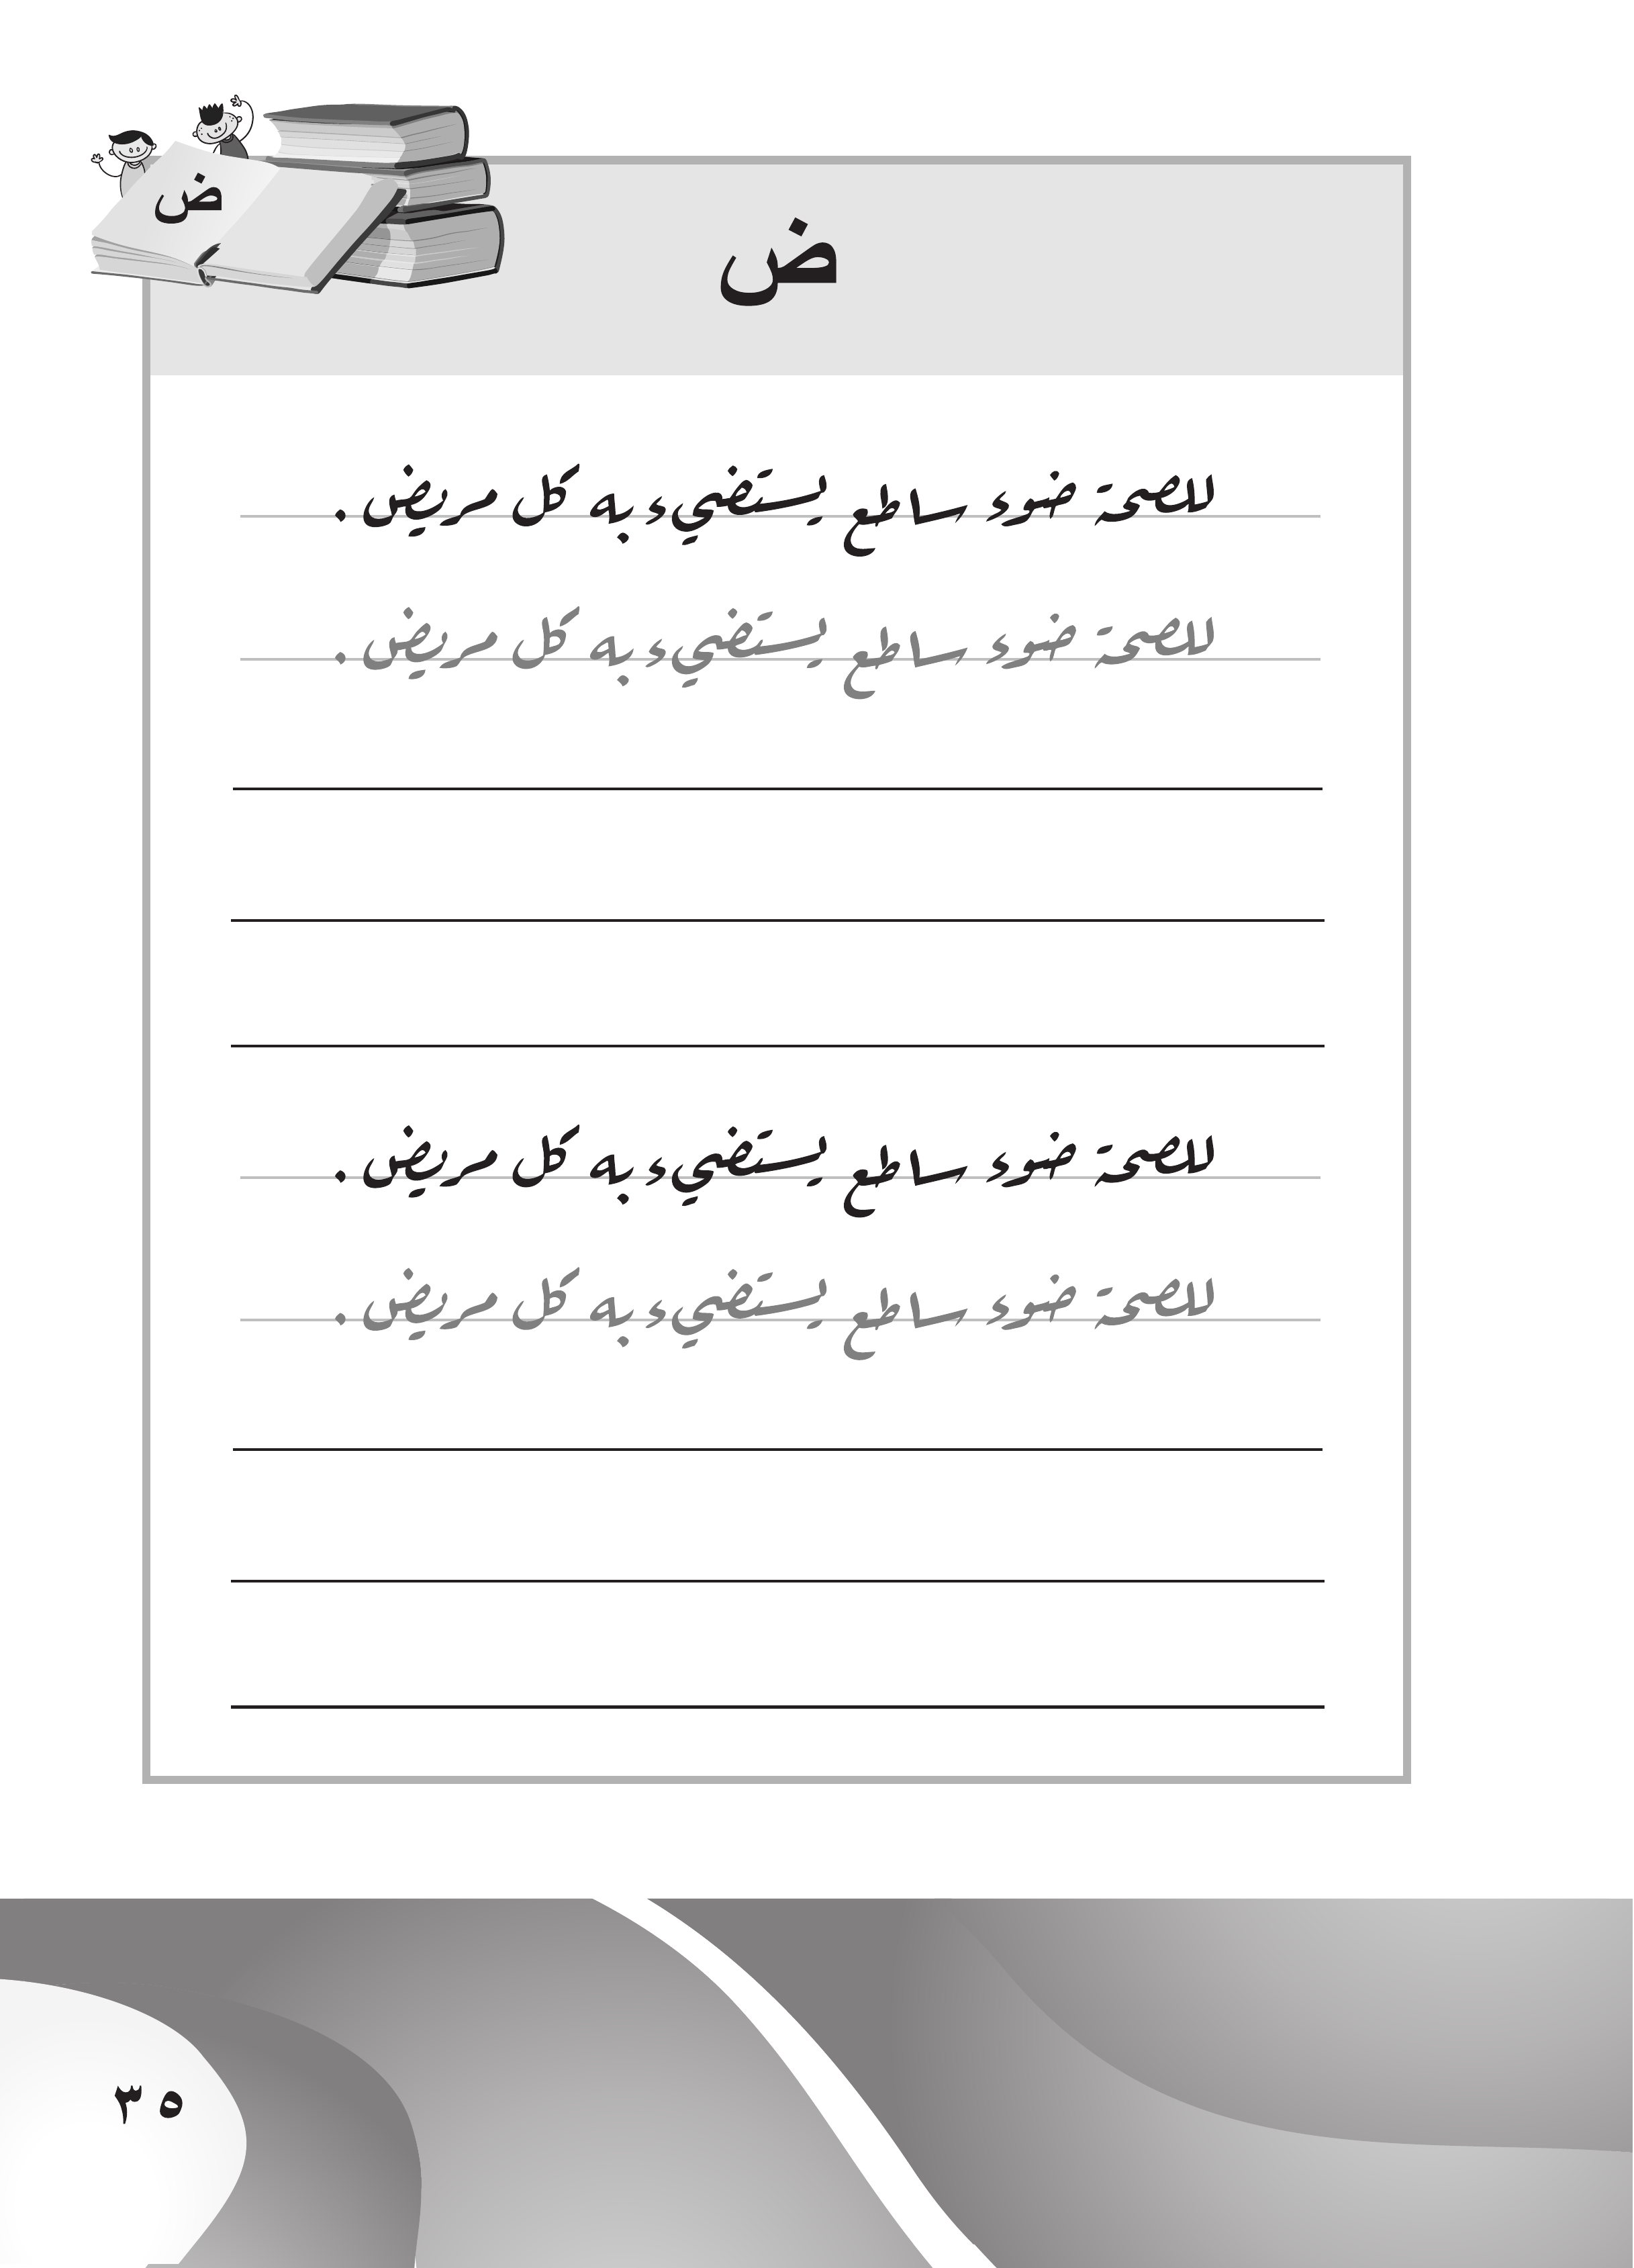 ض
ض
للصحة ضوء ساطع يستضيء به كل مريض .
للصحة ضوء ساطع يستضيء به كل مريض .
للصحة ضوء ساطع يستضيء به كل مريض .
للصحة ضوء ساطع يستضيء به كل مريض .
٣٥